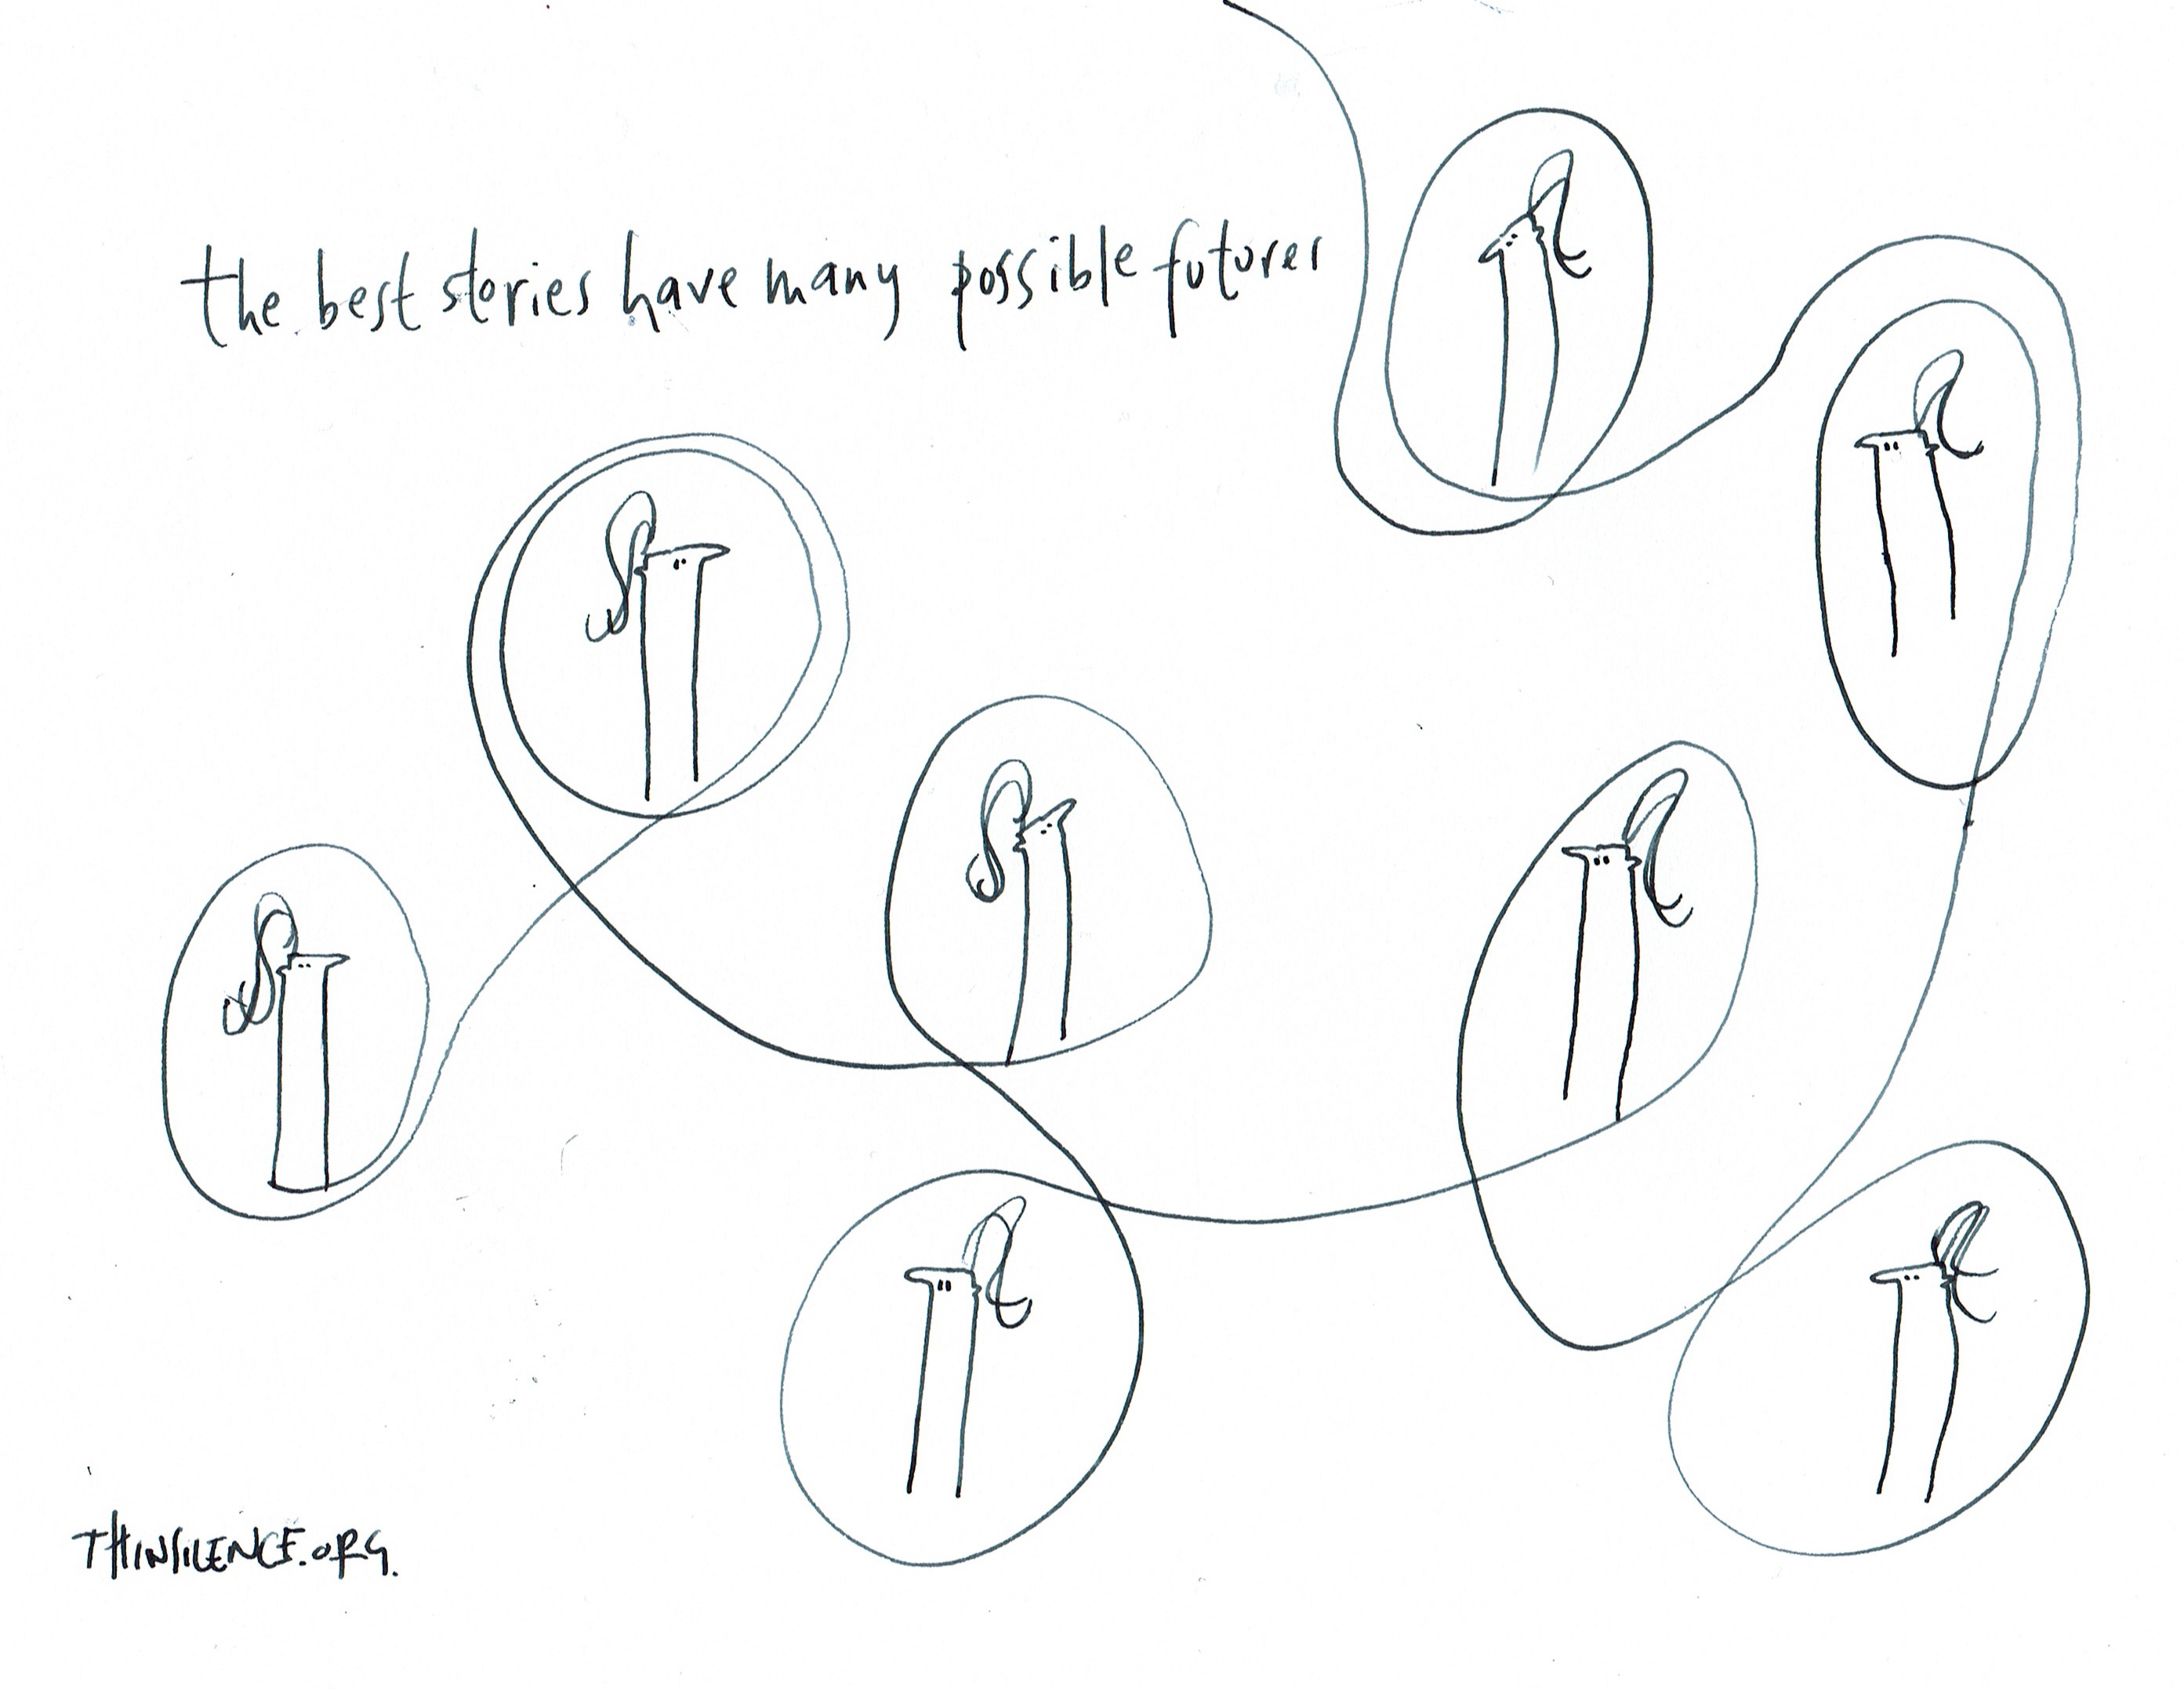 the best stories have many possible futures
THINSILENCE.ORG.